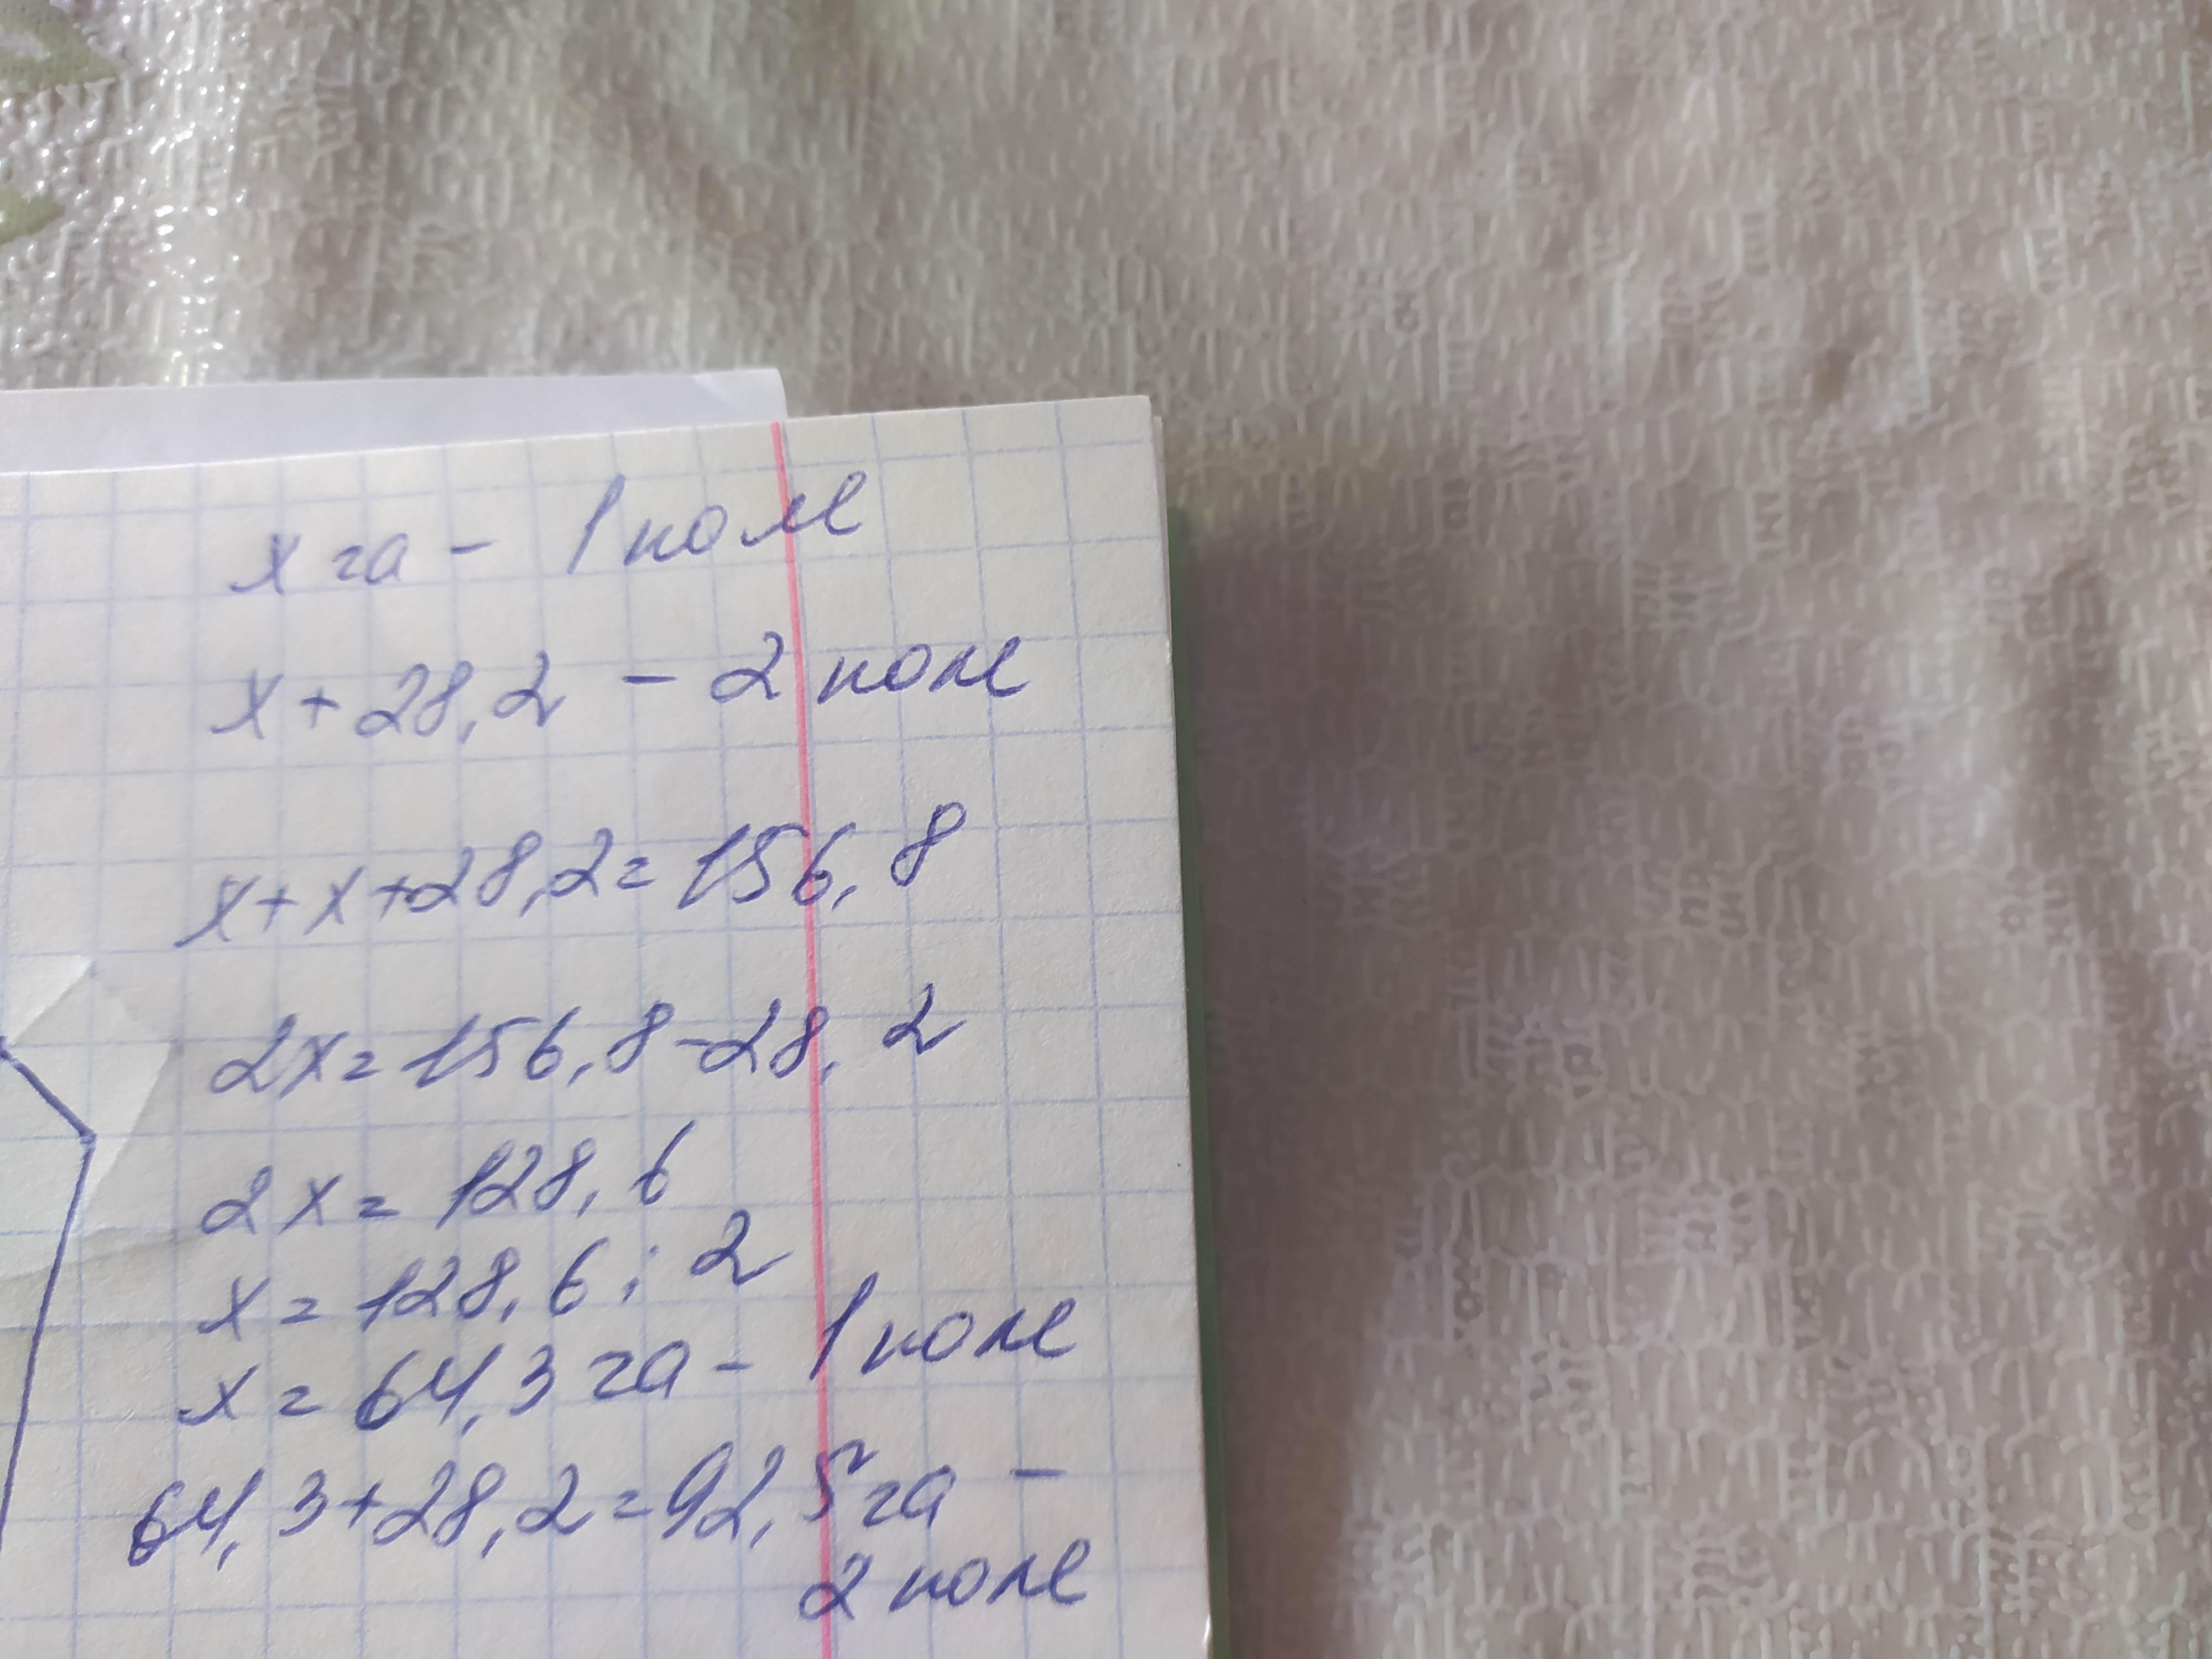 x га - 1 поле
x + 28,2 - 2 поле
x+x+28,2=156,8
2x=156,8-28,2
2x=128,6
x=128,6:2
x=64,3 га - 1 поле
64,3+28,2=92,5 га -
2 поле